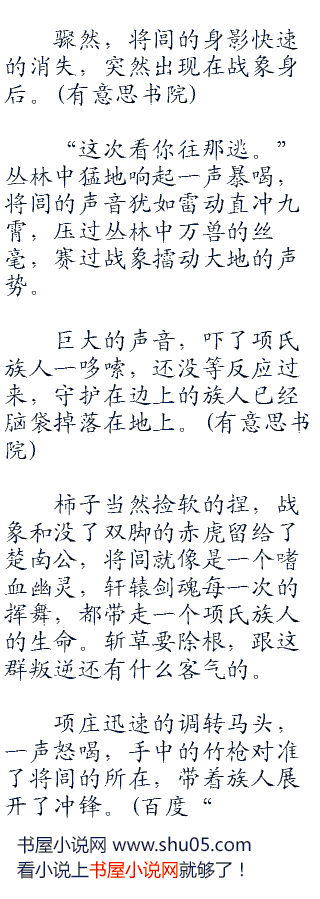 骤然，将闾的身影快速
的消失，突然出现在战象身
后。(有意思书院)
“这次看你往那逃。”
丛林中猛地响起一声暴喝，
将闾的声音犹如雷动直冲九
霄，压过丛林中万兽的丝
毫，赛过战象擂动大地的声
势。
巨大的声音，吓了项氏
族人一哆嗦，还没等反应过
来，守护在边上的族人已经
脑袋掉落在地上。(有意思书
院)
柿子当然捡软的捏，战
象和没了双脚的赤虎留给了
楚南公，将闾就像是一个嗜
血幽灵，轩辕剑魂每一次的
挥舞，都带走一个项氏族人
的生命。斩草要除根，跟这
群叛逆还有什么客气的。
项庄迅速的调转马头，
一声怒喝，手中的竹枪对准
了将闾的所在，带着族人展
开了冲锋。(百度“
书屋小说网 www.shu05.com
看小说上书屋小说网就够了！